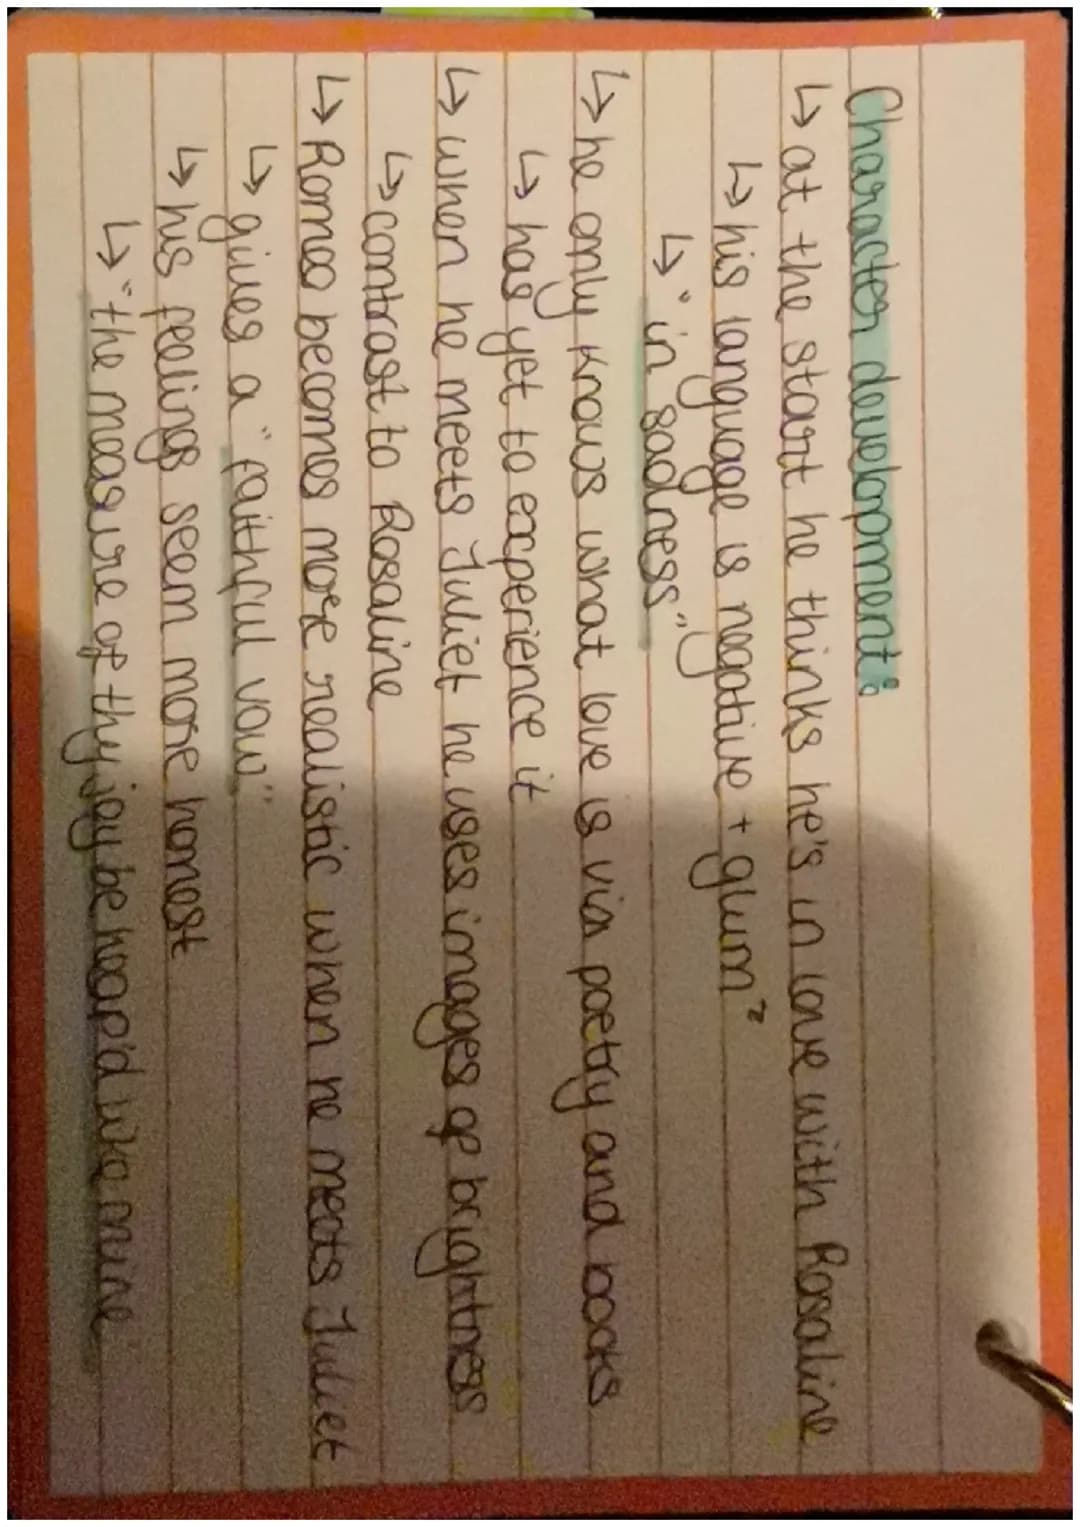 Character development:
↳ at the start he thinks he's in love with Rosaline
↳ his language is negative + glum
↳ "in sadness"
↳ he only knows what love is via poetry and books
↳ has yet to experience it
↳ when he meets Juliet he uses images of brightness
↳ contrast to Rosaline
↳ Romeo becomes more realistic when he meets Juliet
↳ gives a "faithful vow"
↳ his feelings seem more honest
↳ "the measure of thy joy be heap'd like mine"